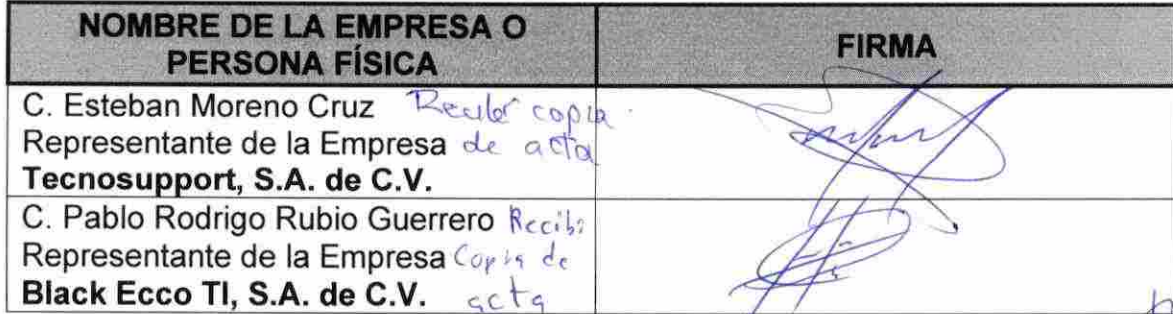 NOMBRE DE LA EMPRESA O
PERSONA FÍSICA
FIRMA
C. Esteban Moreno Cruz Recibí copia
Representante de la Empresa de acta
Tecnosupport, S.A. de C.V.
C. Pablo Rodrigo Rubio Guerrero Recibí
Representante de la Empresa Copia de
Black Ecco TI, S.A. de C.V. acta